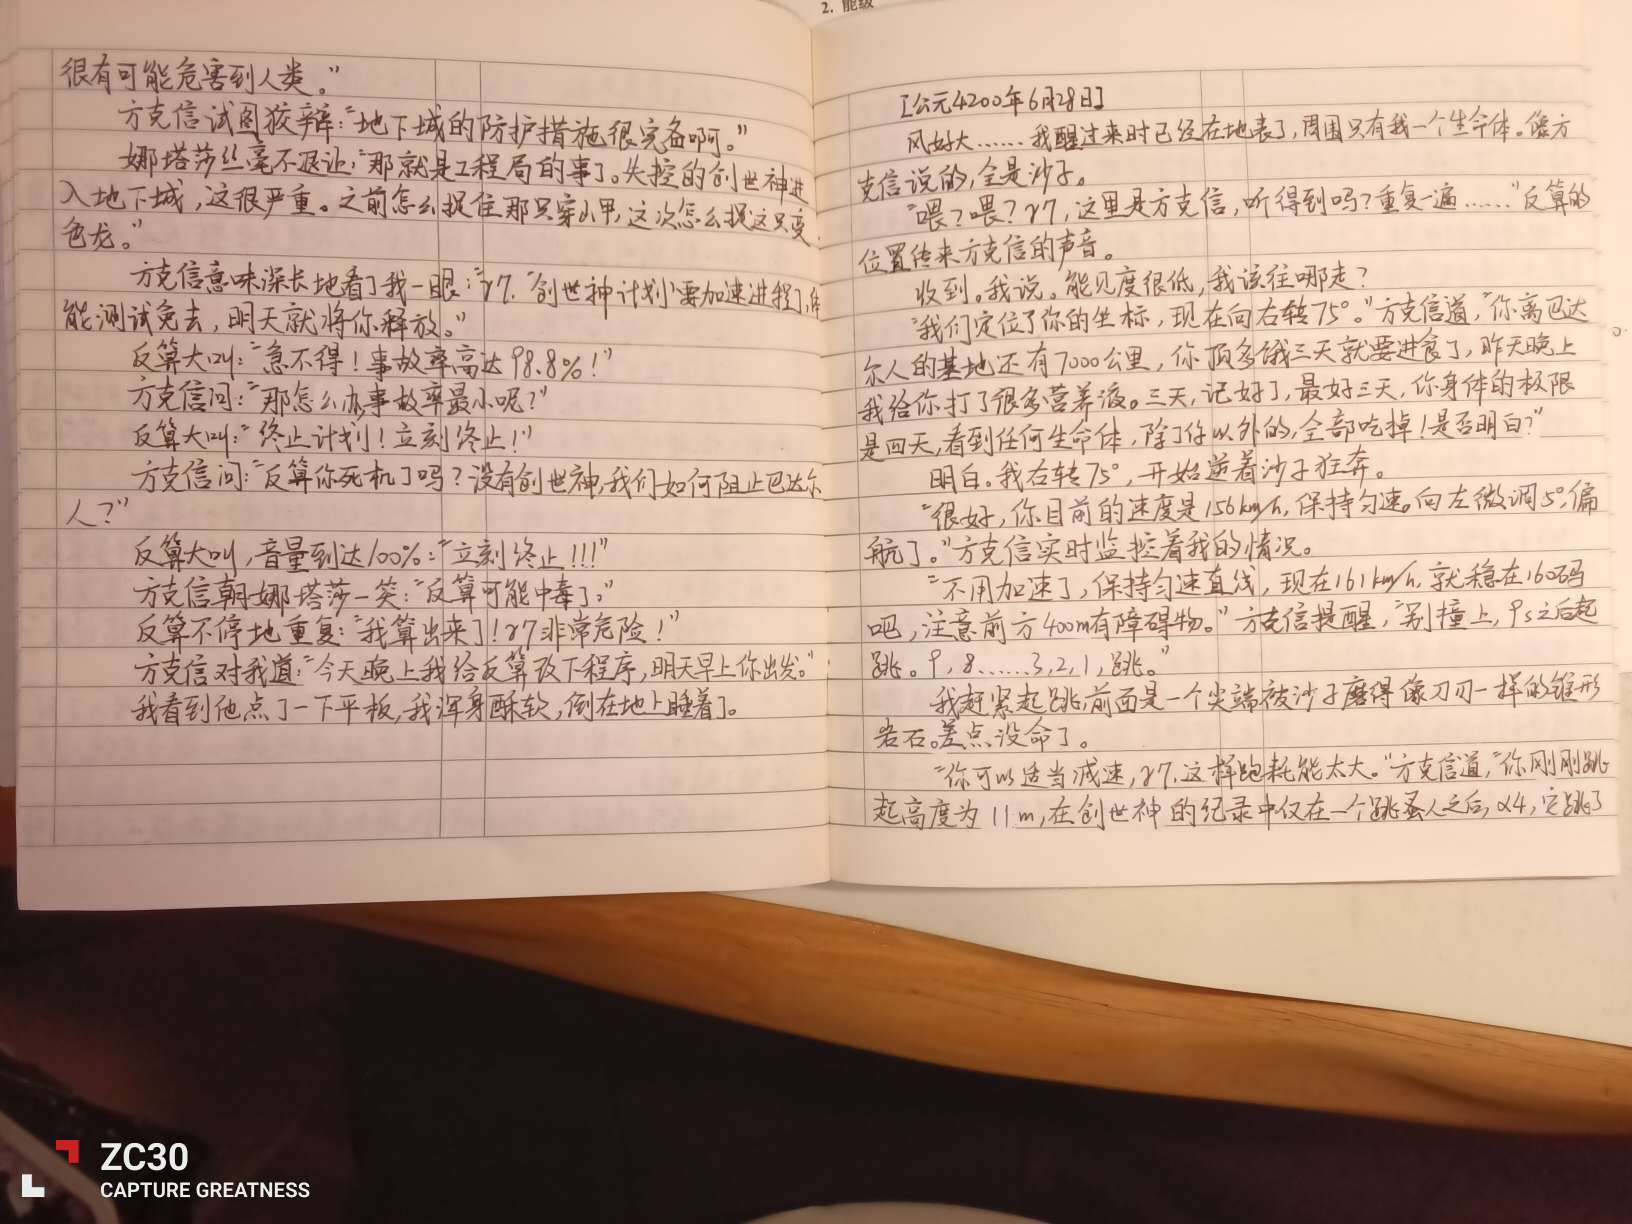 很有可能危害到人类。”
方克信试图狡辩：“地下城的防护措施很完备啊。”
娜塔莎丝毫不退让：“那就是工程局的事了。失控的创世神进
入地下城，这很严重。之前怎么捉住那只穿山甲，这次怎么捉这只变
色龙。”
方克信意味深长地看了我一眼：“γ7，‘创世神计划’要加速进程了，体
能测试免去，明天就将你释放。”
反算大叫：“急不得！事故率高达98.8%！”
方克信问：“那怎么办事故率最小呢？”
反算大叫：“终止计划！立刻终止！”
方克信问：“反算你死机了吗？没有创世神，我们如何阻止巴达尔
人？”
反算大叫，音量到达100%：“立刻终止！！！”
方克信朝娜塔莎一笑：“反算可能中毒了。”
反算不停地重复：“我算出来了！γ7非常危险！”
方克信对我道：“今天晚上我给反算改下程序，明天早上你出发。”
我看到他点了一下平板，我浑身酥软，倒在地上睡着了。
2. 能级
[公元4200年6月28日]
风好大……我醒过来时已经在地表了，周围只有我一个生命体。像方
克信说的，全是沙子。
“喂？喂？γ7，这里是方克信，听得到吗？重复一遍……”反算的
位置传来方克信的声音。
收到。我说。能见度很低，我该往哪走？
“我们定位了你的坐标，现在向右转75°。”方克信道，“你离巴达
尔人的基地还有7000公里，你顶多饿三天就要进食了，昨天晚上
我给你打了很多营养液。三天，记好了，最好三天，你身体的极限
是四天，看到任何生命体，除了你以外的，全部吃掉！是否明白？”
明白。我右转75°，开始逆着沙子狂奔。
“很好，你目前的速度是156km/h，保持匀速。向左微调5°，偏
航了。”方克信实时监控着我的情况。
“不用加速了，保持匀速直线，现在161km/h，就稳在160码
吧，注意前方400m有障碍物。”方克信提醒，“别撞上，9s之后起
跳。9，8……3，2，1，跳。”
我赶紧起跳，前面是一个尖端被沙子磨得像刀刃一样的锥形
岩石。差点没命了。
“你可以适当减速，γ7，这样跑耗能太大。”方克信道，“你刚刚跳
起高度为11m，在创世神的纪录中仅在一个跳蚤人之后，α4，它跳了
ZC30
CAPTURE GREATNESS